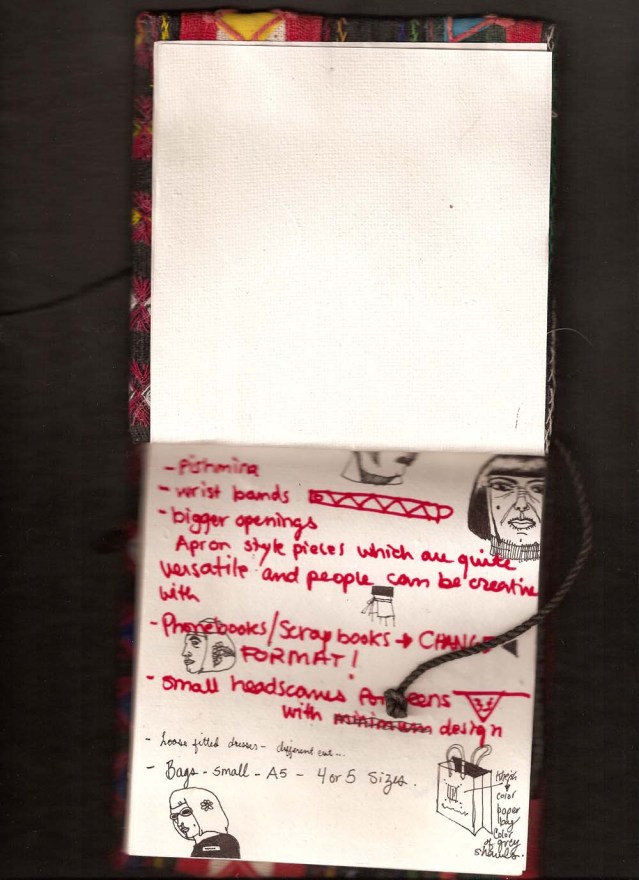 - Pishmina
- wrist bands
- bigger openings
Apron style pieces which are quite
versatile and people can be creative
with
- Phonebooks/Scrapbooks → CHANGE
FORMAT!
- small headscarves for teens
with design
- Loose fitted dresses - different cut...
- Bags - small - A5 - 4 or 5 Sizes.
color
paper
bag
color
of grey